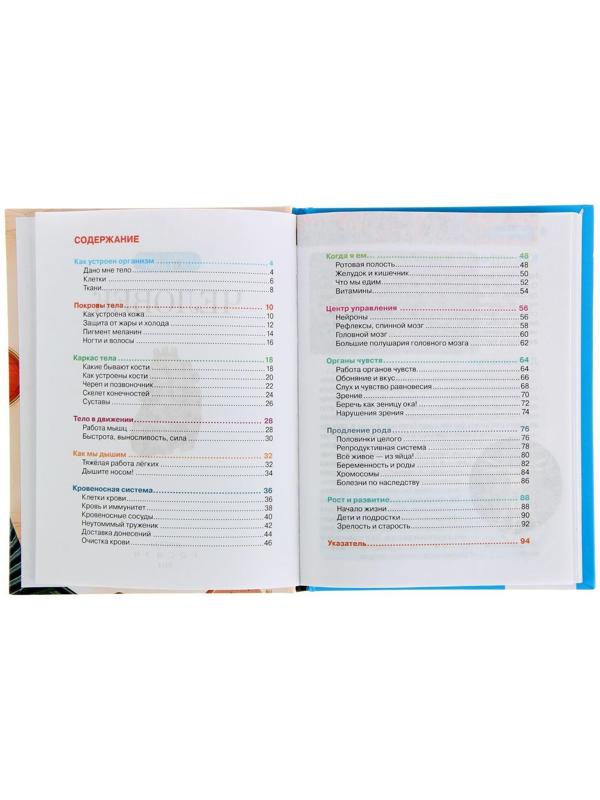 СОДЕРЖАНИЕ
Как устроен организм 4
Дано мне тело 4
Клетки 6
Ткани 8
Покровы тела 10
Как устроена кожа 10
Защита от жары и холода 12
Пигмент меланин 14
Ногти и волосы 16
Каркас тела 18
Какие бывают кости 18
Как устроены кости 20
Череп и позвоночник 22
Скелет конечностей 24
Суставы 26
Тело в движении 28
Работа мышц 28
Быстрота, выносливость, сила 30
Как мы дышим 32
Тяжёлая работа лёгких 32
Дышите носом! 34
Кровеносная система 36
Клетки крови 36
Кровь и иммунитет 38
Кровеносные сосуды 40
Неутомимый труженик 42
Доставка донесений 44
Очистка крови 46
Когда я ем... 48
Ротовая полость 48
Желудок и кишечник 50
Что мы едим 52
Витамины 54
Центр управления 56
Нейроны 56
Рефлексы, спинной мозг 58
Головной мозг 60
Большие полушария головного мозга 62
Органы чувств 64
Работа органов чувств 64
Обоняние и вкус 66
Слух и чувство равновесия 68
Зрение 70
Беречь как зеницу ока! 72
Нарушения зрения 74
Продление рода 76
Половинки целого 76
Репродуктивная система 78
Всё живое — из яйца! 80
Беременность и роды 82
Хромосомы 84
Болезни по наследству 86
Рост и развитие 88
Начало жизни 88
Дети и подростки 90
Зрелость и старость 92
Указатель 94